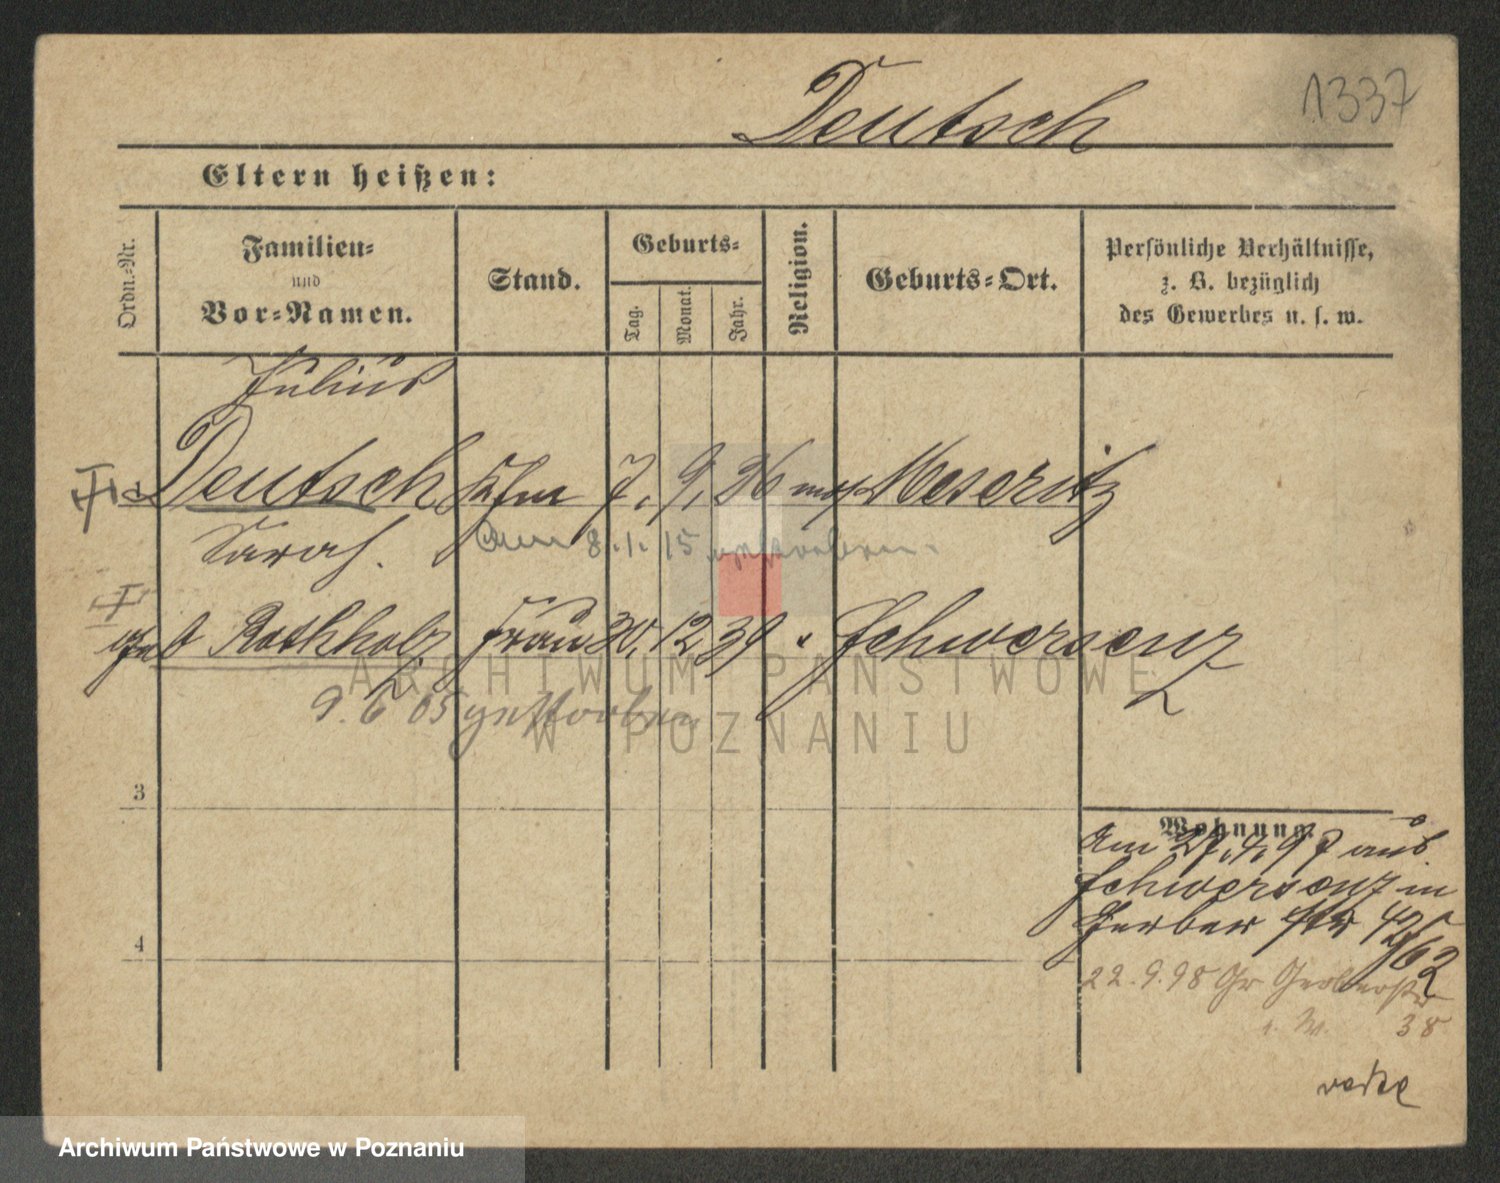 1337
Deutsch
Eltern heißen:
Ordn.-Nr.
Familien-
und
Vor-Namen.
Stand.
Geburts-
Tag.
Monat.
Jahr.
Religion.
Geburts-Ort.
Persönliche Verhältnisse,
z. B. bezüglich
des Gewerbes u. s. w.
Julius
Deutsch Kfm 7. 9. 36 mos Meseritz
am 8.1.15 gestorben.
Sarah.
geb Rothholz Frau 30. 12 39 " Schwersenz
9.6 05 gestorben
ARCHIWUM PAŃSTWOWE
W POZNANIU
3
Wohnung.
Am 27.4.97 aus
Schwersenz in
Gerber str
4
22.9.98 Gr Gerberstr
38
Archiwum Państwowe w Poznaniu